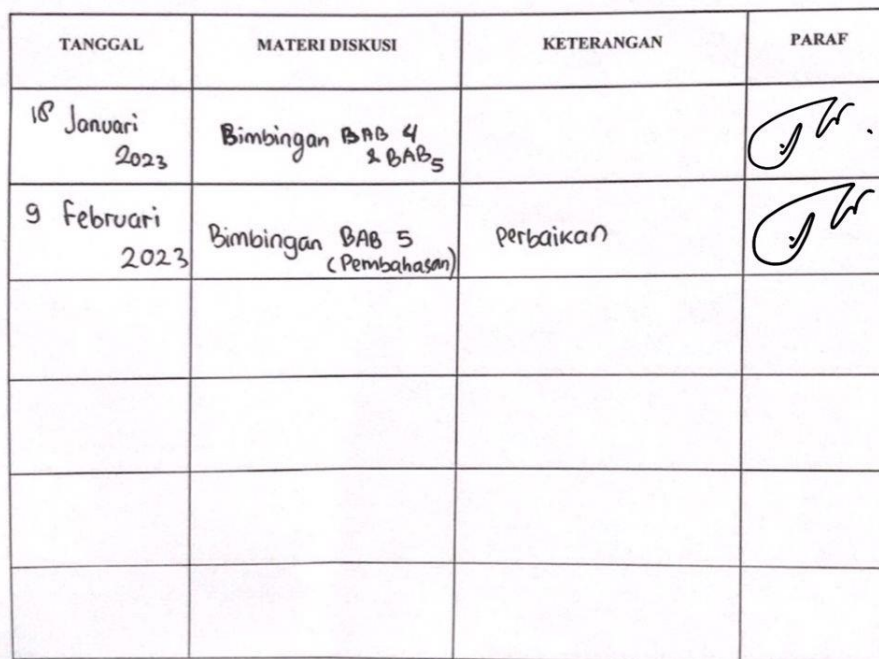 TANGGAL MATERI DISKUSI KETERANGAN PARAF
18 Januari
2023
Bimbingan BAB 4
& BAB 5
9 Februari
2023
Bimbingan BAB 5
(Pembahasan)
Perbaikan